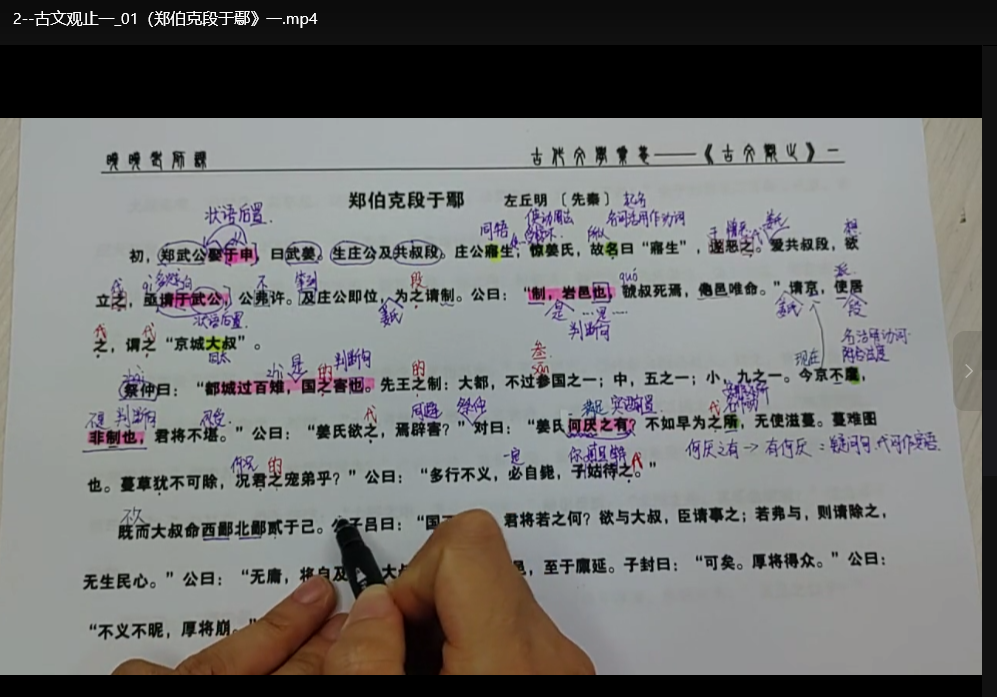 2--古文观止一_01（郑伯克段于鄢》一.mp4
晚晚老师课
古代文学常卷——《古文观止》一
郑伯克段于鄢 左丘明〔先秦〕 记名
状语后置
同牾 使动用法 名词活用作动词 姜氏 想
初，郑武公娶于申，曰武姜。生庄公及共叔段。庄公寤生，惊姜氏，故名曰“寤生”，遂恶之。爱共叔段，欲
代 qì 多次的 不 等到 段 guó 派
立之，亟请于武公，公弗许。及庄公即位，为之请制。公曰：“制，岩邑也，虢叔死焉，佗邑唯命。”请京，使居
状语后置 姜氏 是 是 姜氏 段
代 代 判断句
之，谓之“京城大叔”。
同太 现在 名词活用动词
zhài 是 的 判断句 的 叁 sān
祭仲曰：“都城过百雉，国之害也。先王之制：大都，不过参国之一；中，五之一；小，九之一。今京不度，
不是 判断句 忍受 代 同避 祭仲 满足 宾语前置 代
非制也，君将不堪。”公曰：“姜氏欲之，焉辟害？”对曰：“姜氏何厌之有？不如早为之所，无使滋蔓。蔓难图
何厌之有→有何厌：疑问句，代词作宾语
何况 的 一定 你 姑且 代
也。蔓草犹不可除，况君之宠弟乎？”公曰：“多行不义，必自毙，子姑待之。”
不久
既而大叔命西鄙北鄙贰于己。公子吕曰：“国不 君将若之何？欲与大叔，臣请事之；若弗与，则请除之，
无生民心。”公曰：“无庸，将自及 大叔 邑，至于廪延。子封曰：“可矣。厚将得众。”公曰：
“不义不昵，厚将崩。”